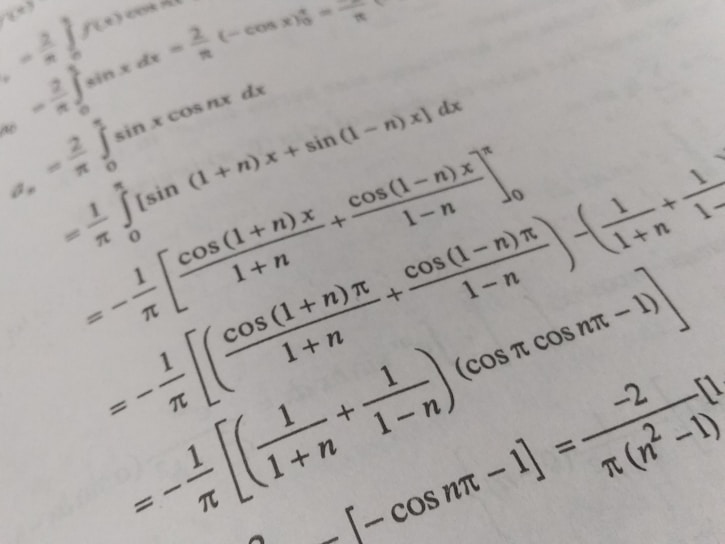 = 2/π ∫₀ f(x) cos n
= 2/π ∫₀ sin x dx = 2/π (− cos x)₀ =
aₙ = 2/π ∫₀^π sin x cos nx dx
= 1/π ∫₀^π [sin (1 + n) x + sin (1 − n) x] dx
= − 1/π [cos (1 + n) x / 1 + n + cos (1 − n) x / 1 − n]₀^π
= − 1/π [(cos (1 + n) π / 1 + n + cos (1 − n) π / 1 − n) − (1 / 1 + n + 1 / 1 −
= − 1/π [(1 / 1 + n + 1 / 1 − n) (cos π cos nπ − 1)]
[− cos nπ − 1] = −2 / π (n² − 1) [1